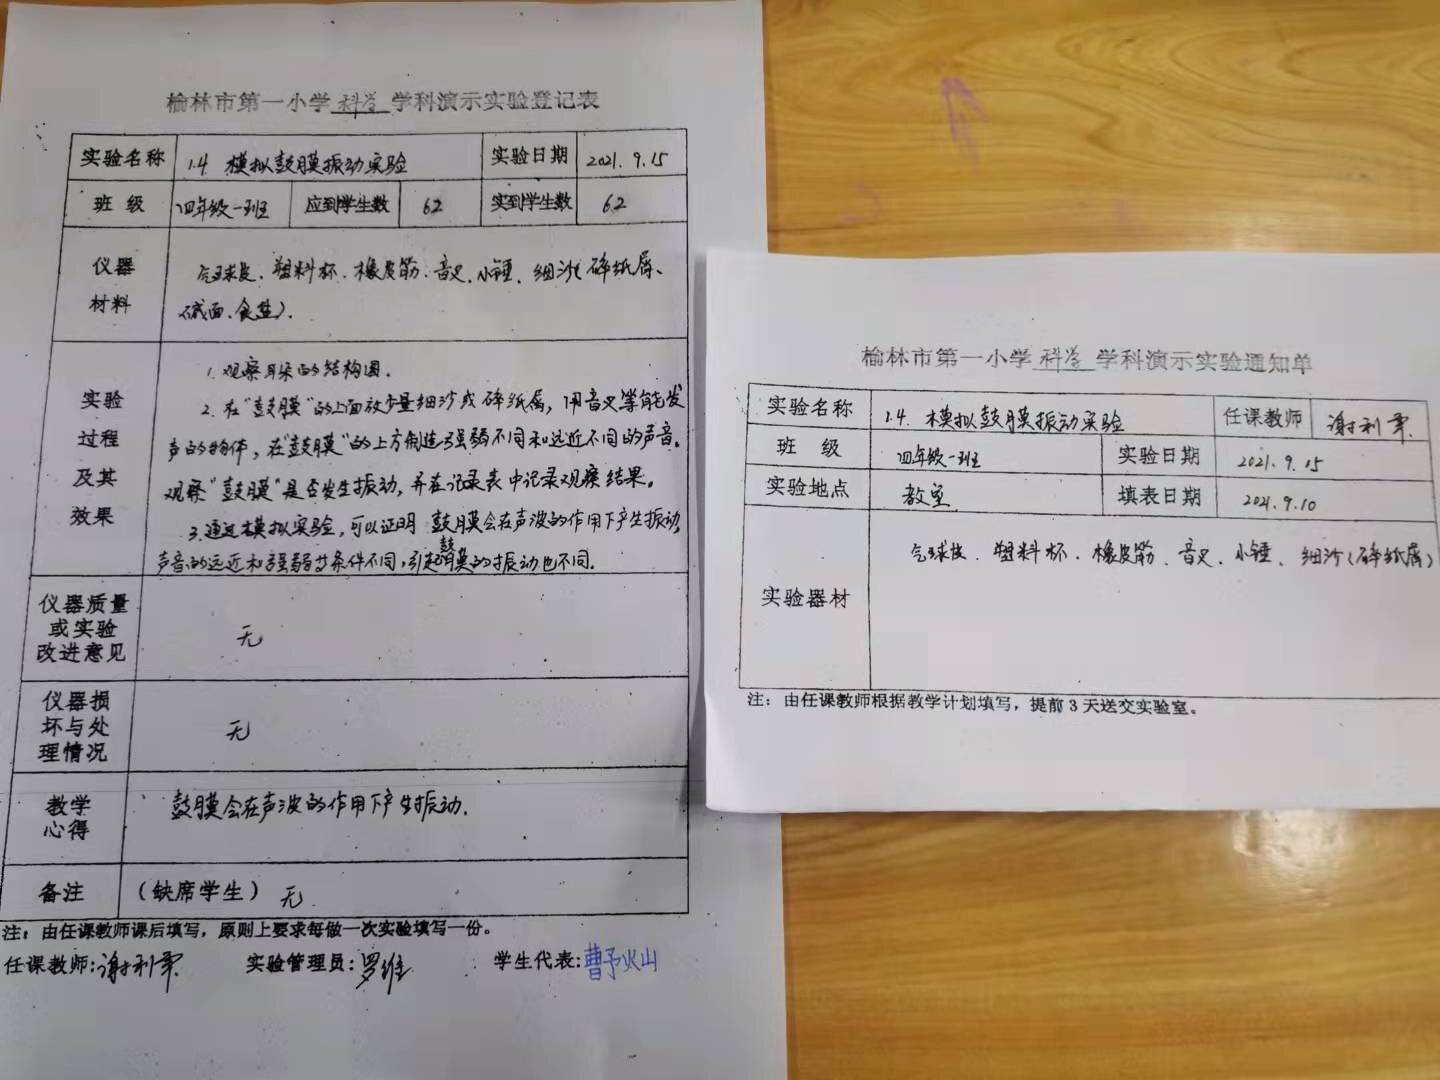 榆林市第一小学 科学 学科演示实验登记表
实验名称 1.4 模拟鼓膜振动实验 实验日期 2021.9.15
班 级 四年级一班 应到学生数 62 实到学生数 62
仪器材料
气球皮、塑料杯、橡皮筋、音叉、小锤、细沙(碎纸屑、
碱面、食盐).
实验过程及其效果
1.观察耳朵的结构图.
2.在“鼓膜”的上面放少量细沙或碎纸屑,用音叉等能发
声的物体,在“鼓膜”的上方制造强弱不同和远近不同的声音。
观察“鼓膜”是否发生振动,并在记录表中记录观察结果。
3.通过模拟实验,可以证明 鼓膜会在声波的作用下产生振动,
声音的远近和强弱等条件不同,引起鼓膜的振动也不同.
仪器质量或实验改进意见 无
仪器损坏与处理情况 无
教学心得 鼓膜会在声波的作用下产生振动.
备注 (缺席学生) 无
注:由任课教师课后填写,原则上要求每做一次实验填写一份。
任课教师:谢利军 实验管理员:罗维 学生代表:曹予火山
榆林市第一小学 科学 学科演示实验通知单
实验名称 1.4 模拟鼓膜振动实验 任课教师 谢利军
班 级 四年级一班 实验日期 2021.9.15
实验地点 教室 填表日期 2021.9.10
实验器材 气球皮、塑料杯、橡皮筋、音叉、小锤、细沙(碎纸屑)
注:由任课教师根据教学计划填写,提前3天送交实验室。